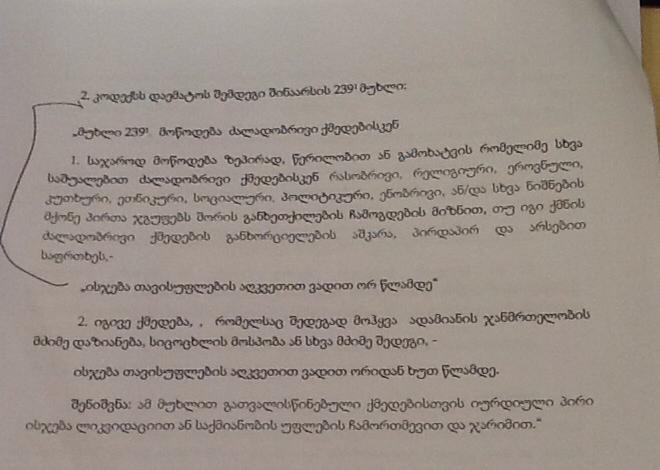 2. კოდექსს დაემატოს შემდეგი შინაარსის 239¹ მუხლი:
„მუხლი 239¹. მოწოდება ძალადობრივი ქმედებისკენ
1. საჯაროდ მოწოდება ზეპირად, წერილობით ან გამოხატვის რომელიმე სხვა
საშუალებით ძალადობრივი ქმედებისკენ რასობრივი, რელიგიური, ეროვნული,
კუთხური, ეთნიკური, სოციალური, პოლიტიკური, ენობრივი, ან/და სხვა ნიშნების
მქონე პირთა ჯგუფებს შორის განხეთქილების ჩამოგდების მიზნით, თუ იგი ქმნის
ძალადობრივი ქმედების განხორციელების აშკარა, პირდაპირ და არსებით
საფრთხეს,-
„ისჯება თავისუფლების აღკვეთით ვადით ორ წლამდე“
2. იგივე ქმედება, , რომელსაც შედეგად მოჰყვა ადამიანის ჯანმრთელობის
მძიმე დაზიანება, სიცოცხლის მოსპობა ან სხვა მძიმე შედეგი, -
ისჯება თავისუფლების აღკვეთით ვადით ორიდან ხუთ წლამდე.
შენიშვნა: ამ მუხლით გათვალისწინებული ქმედებისთვის იურდიული პირი
ისჯება ლიკვიდაციით ან საქმიანობის უფლების ჩამორთმევით და ჯარიმით.“